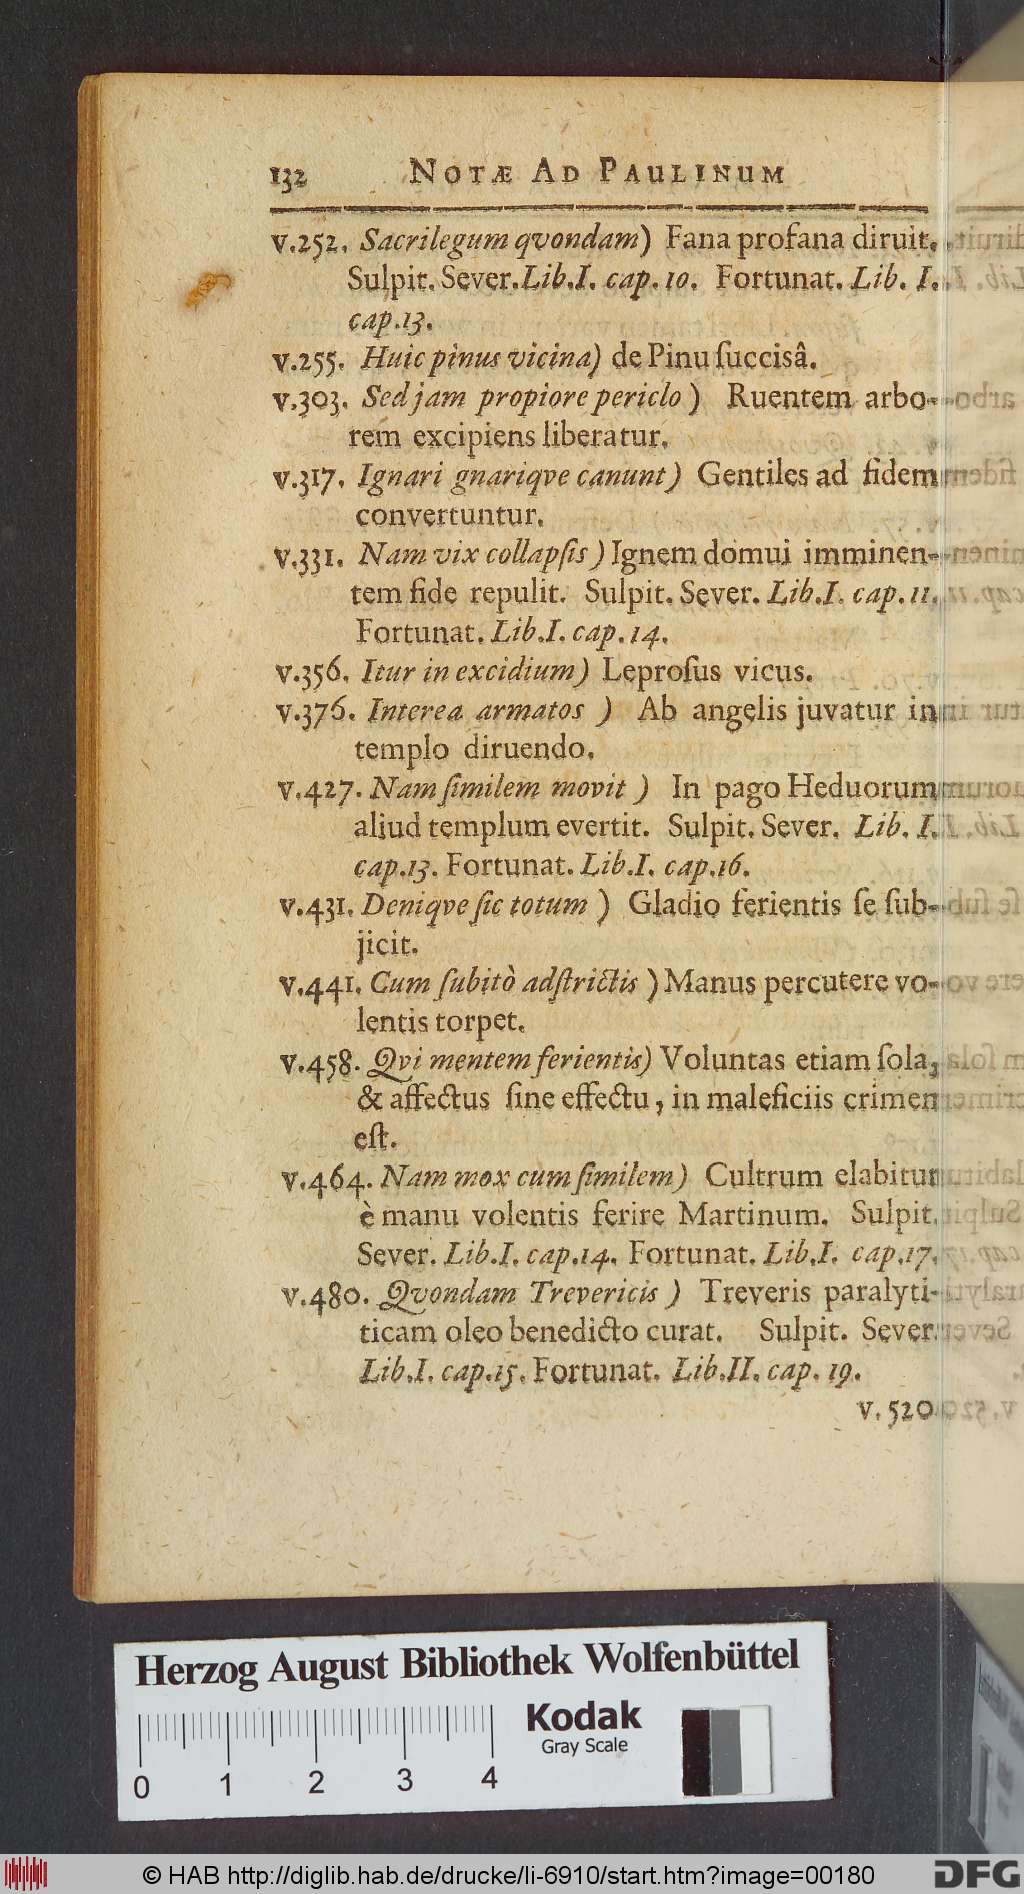 132 NOTÆ AD PAULINUM
v.252. Sacrilegum qvondam) Fana profana diruit.
Sulpit. Sever. Lib.I. cap. 10. Fortunat. Lib. I.
cap.13.
v.255. Huic pinus vicina) de Pinu ſuccisâ.
v.303. Sed jam propiore periclo) Ruentem arbo-
rem excipiens liberatur.
v.317. Ignari gnariqve canunt) Gentiles ad fidem
convertuntur.
v.331. Nam vix collapſis) Ignem domui imminen-
tem fide repulit. Sulpit. Sever. Lib.I. cap. 11.
Fortunat. Lib.I. cap. 14.
v.356. Itur in excidium) Leproſus vicus.
v.376. Interea armatos) Ab angelis juvatur in
templo diruendo.
v.427. Nam ſimilem movit) In pago Heduorum
aliud templum evertit. Sulpit. Sever. Lib. I.
cap.13. Fortunat. Lib.I. cap.16.
v.431. Deniqve ſic totum) Gladio ferientis ſe ſub-
jicit.
v.441. Cum ſubitò adſtrictis) Manus percutere vo-
lentis torpet.
v.458. Qvi mentem ferientis) Voluntas etiam ſola,
& affectus ſine effectu, in maleficiis crimen
eſt.
v.464. Nam mox cum ſimilem) Cultrum elabitur
è manu volentis ferire Martinum. Sulpit.
Sever. Lib.I. cap.14. Fortunat. Lib.I. cap.17.
v.480. Qvondam Trevericis) Treveris paralyti-
ticam oleo benedicto curat. Sulpit. Sever.
Lib.I. cap.15. Fortunat. Lib.II. cap. 19.
v. 520
Herzog August Bibliothek Wolfenbüttel
Kodak
Gray Scale
0 1 2 3 4
© HAB http://diglib.hab.de/drucke/li-6910/start.htm?image=00180
DFG